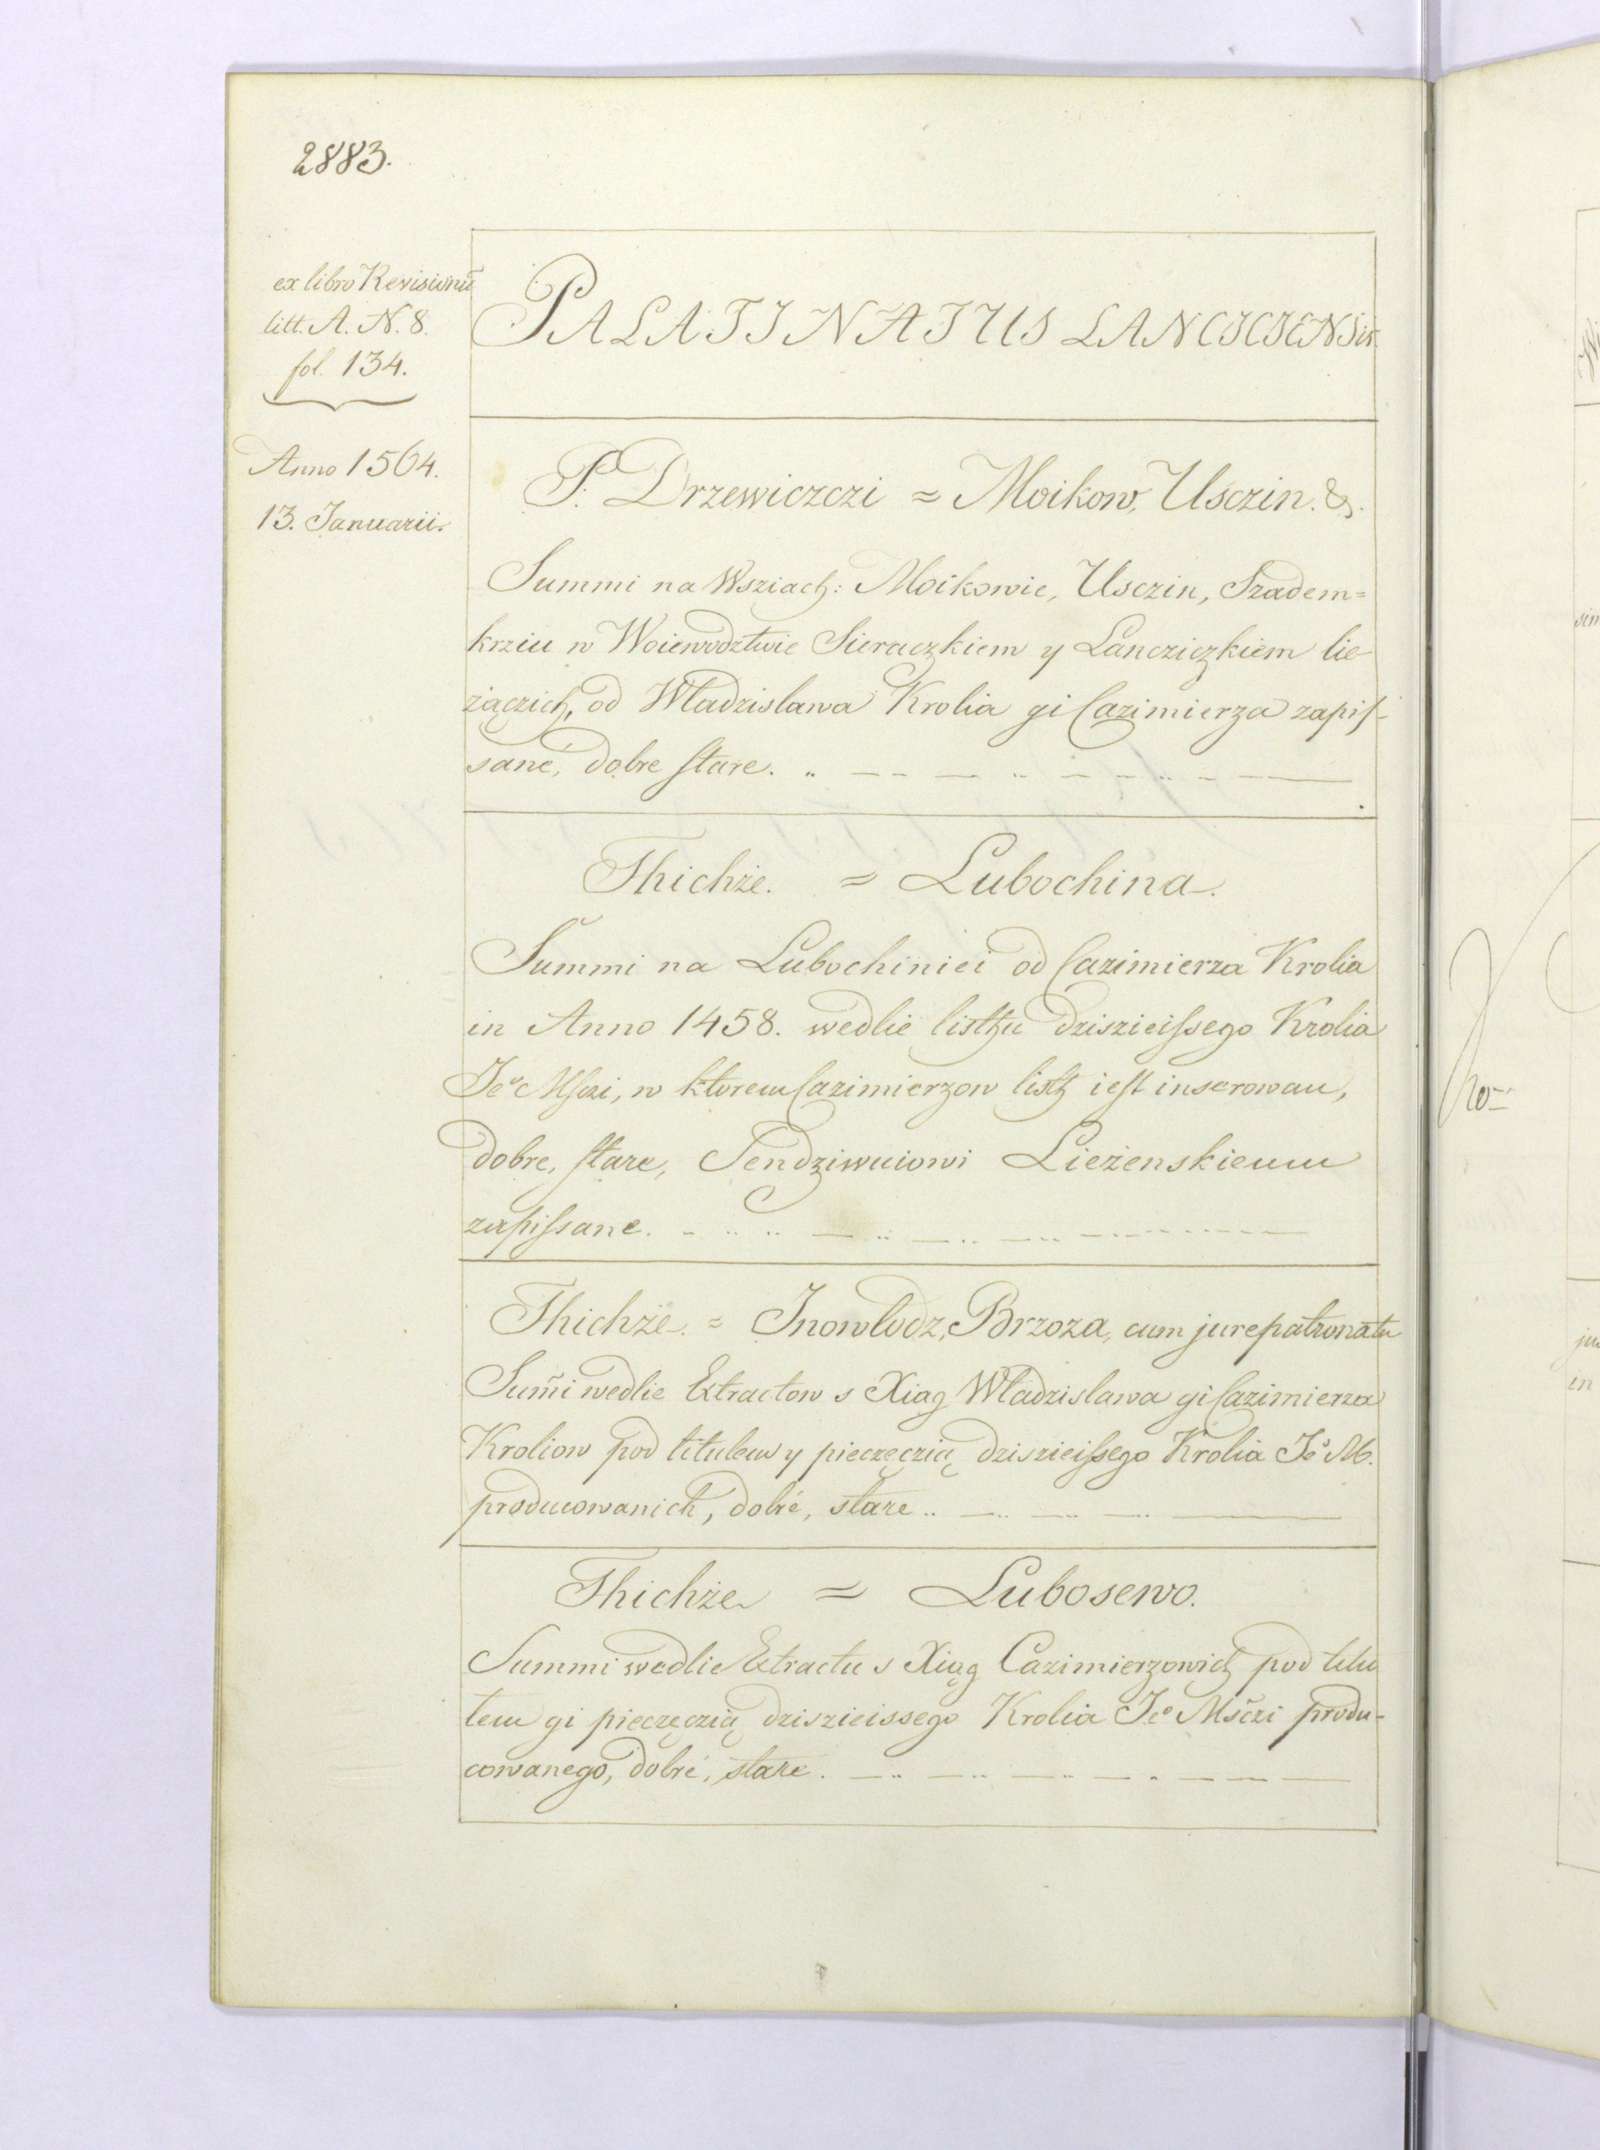 2883.
ex libro Revisionū
litt. A. N. 8.
fol. 134.
Anno 1564.
13. Januarii.
PALATINATUS LANCICIENSis
P. Drzewiczczi = Moikow, Usczin. &.
Summi na Wsziach: Moikowie, Usczin, Szadem=
krziu w Woiewodztwie Sieraczkiem y Lancziczkiem lie-
żączich, od Wladzislawa Krolia gi Cazimierza zapis-
sané, dobre stare.
Thichże. = Lubochina.
Summi na Lubochiniei od Cazimierza Krolia
in Anno 1458. wedlie listhu dziszieissego Krolia
Jeº Msczi, w ktorem Cazimierzow listh iest inserowan,
dobre, stare, Sendziwuiowi Lieżenskiemu
zapissane.
Thichże = Jnowlodz, Brzoza, cum jurepatronatu
Sum̃i wedlie Extractow s Xiag Wladzislawa gi Cazimierza
Kroliow pod titulem y pieczęczią dziszieissego Krolia Jeº M.
producowanich, dobré, stare
Thichże = Lubosewo.
Summi wedlie Extractu s Xiąg Cazimierzowich pod titu
lem gi pieczęczią dziszieissego Krolia Jeº Msczi produ-
cowanego, dobré, stare.